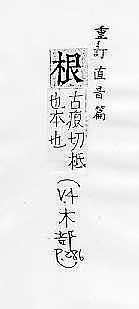 重訂直音篇
根
古痕切柢
也本也
(V.4
木
部
P.286)